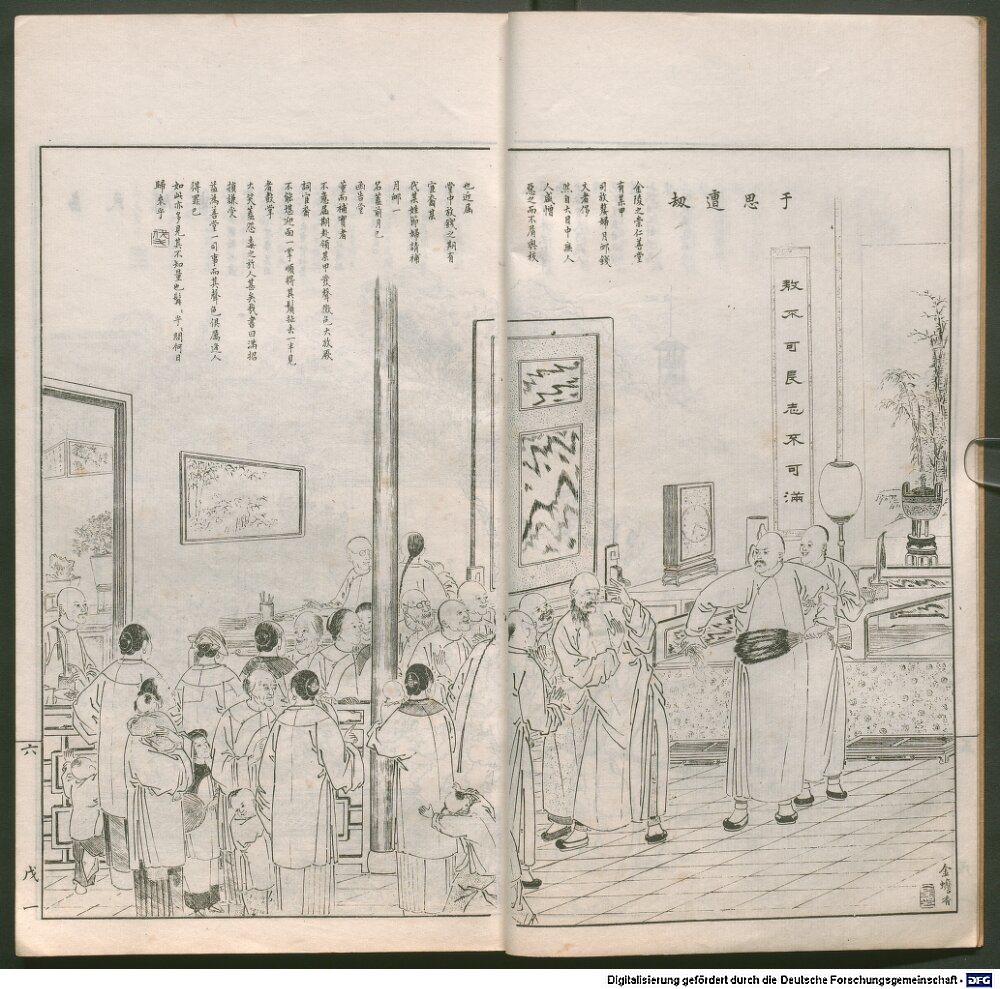 于思遭劫
金陵之崇仁善堂
有某甲
司放嫠婦月卹錢
文者
然自大目中無人
人咸憎
惡之而不屑與校
也近屆
堂中放錢之期有
宦裔某
代某姓節婦請補
月卹一
名蓋前月已
函告堂
董而補實者
不應屆期赴領某甲發聲徵色大放厥
詞宦裔
不能堪迎面一掌順得其鬚扯去一半見
者鼓掌
大笑蓋怨毒之於人甚矣哉書曰滿招
損謙受
益為善堂一司事而其聲色俱厲
得罪已
如此亦多見其不知量也髯髯乎何日
歸來乎
敖不可長志不可滿
金蟾香
六
戊一
Digitalisierung gefördert durch die Deutsche Forschungsgemeinschaft - DFG